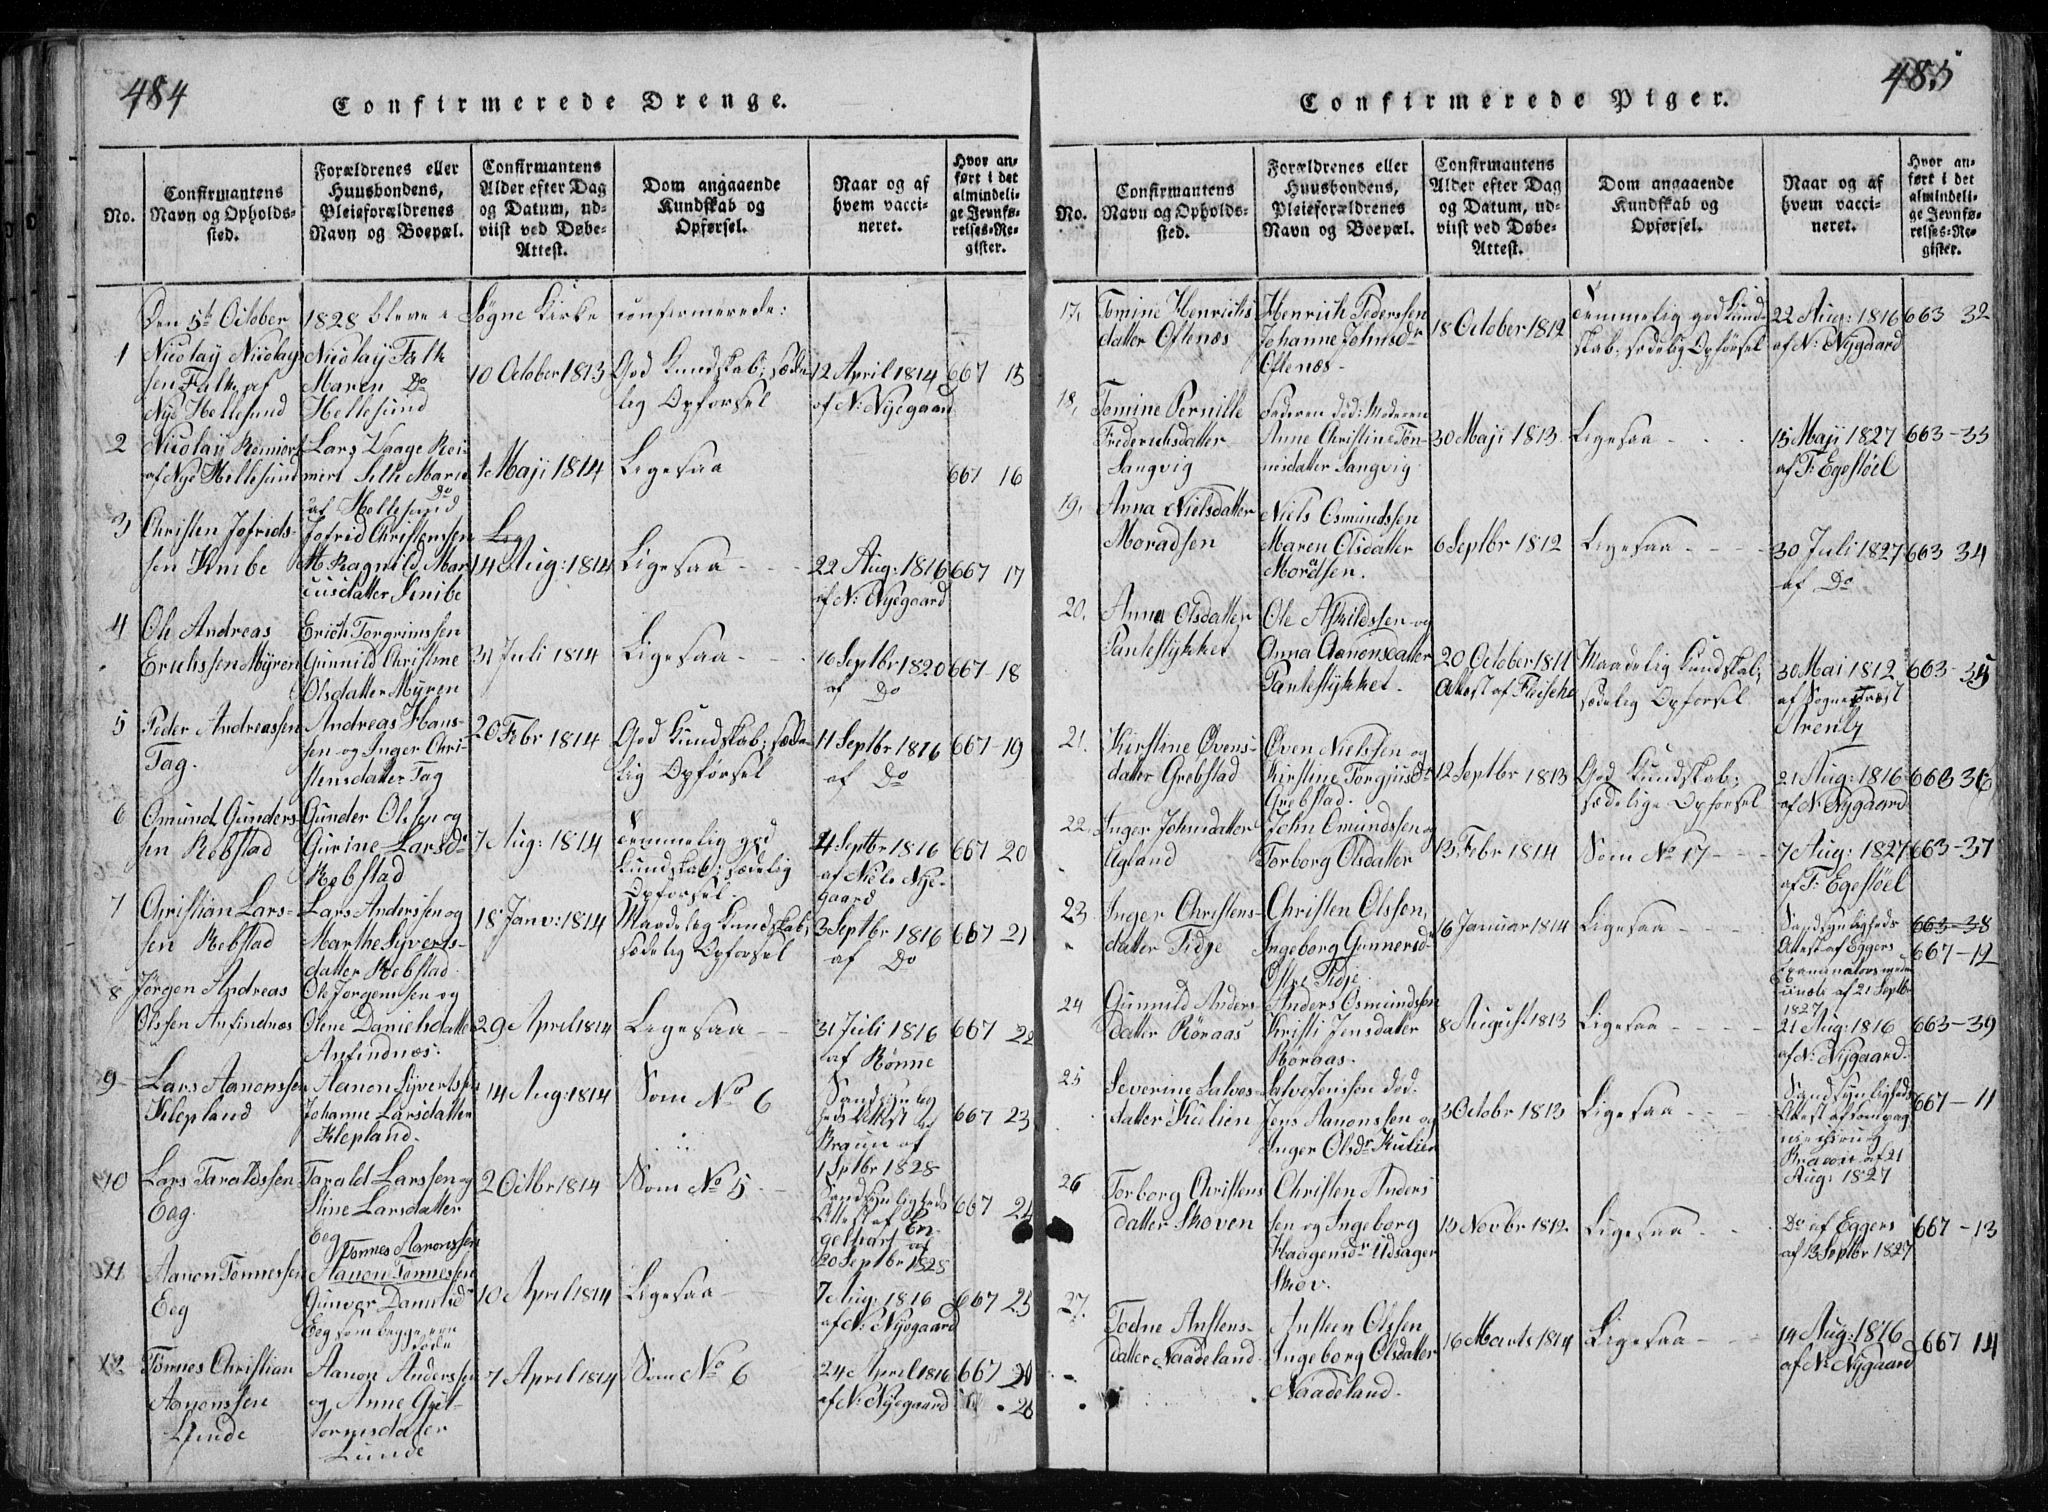 484
Confirmerede Drenge.
No.
Confirmantens Navn og Opholdssted.
Forældrenes eller Huusbondens, Pleieforældrenes Navn og Boepæl.
Confirmantens Alder efter Dag og Datum, udviist ved Døbe-Attest.
Dom angaaende Kundskab og Opførsel.
Naar og af hvem vaccineret.
Hvor anført i det almindelige Jevnførelses-Register.
Den 5te October 1828 bleve i Søgne Kirke confirmerede:
1
Nicolay Nicolaysen Falk af Nye Hellesund
Nicolay Falk Maren Do Hellesund
10 October 1813
God Kundskab; sædelig Opførsel
12 April 1814 af N: Nyegaard
667 15
2
Nicolay Reimert af Nye Hellesund
Lars Vaage Reimert Silk Marie Do af Hellesund
1 Maji 1814
Ligesaa
667 16
3
Christen Jofridssen Knibe
Jofrid Christenssen Ragnild Marcusdatter Knibe
14 Aug: 1814
Ligesaa
22 Aug: 1816 af N: Nyegaard
667 17
4
Ole Andreas Erichssen Myren
Erich Torgrimssen Gunnild Christine Olsdatter Myren
31 Juli 1814
Ligesaa
16 Septbr 1820 af Do
667 18
5
Peder Andreassen Tag.
Andreas Hanssen og Inger Christensdatter Tag
20 Febr 1814
God Kundskab; sædelig Opførsel
11 Septbr 1816 af Do
667 19
6
Omund Gunderssen Rebstad
Gunder Olssen og Gurine Larsdr Rebstad
7 Aug: 1814
Temmelig god Kundskab; sædelig Opførsel
4 Septbr 1816 af Niels Nyegaard
667 20
7
Christian Larssen Rebstad
Lars Anderssen og Marthe Syvertsdatter Rebstad
18 Janv: 1814
Maadelig Kundskab; sædelig Opførsel
3 Septbr 1816 af Do
667 21
8
Jørgen Andreas Olssen Anfindnæs
Ole Jørgenssen og Olene Danielsdatter Anfindnæs.
29 April 1814
Ligesaa
31 Juli 1816 af Rønne
667 22
9
Lars Aanonssen Klepland
Aanon Syvertssen Johanne Larsdatter Klepland.
14 Aug: 1814
Som No 6
Sandsynligheds Attest af Braun af 1 Sptbr 1828
667 23
10
Lars Taraldssen Eeg.
Tarald Larssen og Stine Larsdatter Eeg
2 Octbr 1814
Som No 5
Sandsynligheds Attest af Engelhart af 20 Septbr 1828
667 24
11
Aanon Tønnessen Eeg
Tønnes Aanonssen Aanon Tønnessen Gunvor Danielsdr Eeg som begge ere døde
10 April 1814
Ligesaa
7 Aug: 1816 af N: Nyegaard
667 25
12
Tønnes Christian Aanonssen Lunde
Aanon Anderssen og Anne Gjeltormsdatter Lunde
7 April 1814
Som No 6
24 April 1816 af N: Nyegaard
667 26
485
Confirmerede Piger.
No.
Confirmantens Navn og Opholdssted.
Forældrenes eller Huusbondens, Pleieforældrenes Navn og Boepæl.
Confirmantens Alder efter Dag og Datum, udviist ved Døbe-Attest.
Dom angaaende Kundskab og Opførsel.
Naar og af hvem vaccineret.
Hvor anført i det almindelige Jevnførelses-Register.
17,
Tomine Henrichsdatter Oftenæs
Henrich Pederssen Johanne Johnsdr Oftenæs.
18 October 1812
Temmelig god Kundskab; sædelig Opførsel
22 Aug: 1816 af N: Nygaard
663 32
18,
Tomine Pernille Frederichsdatter Langvig
Faderen død: Moderen Anne Christine Tønnisdatter Langvig
30 Maji 1813.
Ligesaa
15 Maji 1827 af T: Egestøel
663-33
19,
Anna Nielsdatter Moradsen
Niels Osmundssen Maren Olsdatter Moradsen.
6 Septbr 1812
Ligesaa
30 Juli 1827 af Do
663 34
20,
Anna Olsdatter Pantestykket
Ole Askildssen og Anna Aanonsdatter Pantestykket.
20 October 1811 Attest af Fleischer
Maadelig Kundskab; sædelig Opførsel
30 Mai 1812 af Sognepræst Arentz
663-35
21.
Kirstine Øvensdatter Grebstad
Øven Nielssen og Kirstine Torgjusdr Grebstad.
12 Septbr 1813
God Kundskab; sædelige Opførsel
21 Aug: 1816 af N: Nygaard
663 36
22.
Inger Johnsdatter Agland
John Omundssen og Torborg Olsdatter
13 Febr 1814
Som No 17
7 Aug: 1827 af T: Egestøel
663-37
23
Inger Christensdatter Fidje
Christen Olssen, Ingeborg Gunnersdr Østre Fidje.
16 Januar 1814
Ligesaa
Sandsynligheds Attest af Eggers af 21 Septbr 1827
663-38
667-12
24
Gunnild Andersdatter Røraas
Anders Osmundssen Kirsti Jensdatter Røraas.
8 August 1813
Ligesaa
21 Aug: 1816 af N: Nygaard.
663-39
25
Severine Salvesdatter Kulien
Salve Jenssen død. Jens Aanonssen og Inger Olsdr Kulien
3 Octobr 1813
Ligesaa
Sandsynligheds Attest af af 21 Aug: 1827
667-11
26
Torborg Christensdatter Skoven
Christen Anderssen og Ingeborg Haagensdr Udsager Skov.
13 Novbr 1812.
Ligesaa
Do af Eggers af 13 Septbr 1827
667-13
27.
Todne Anstensdatter Naadeland
Ansteen Olssen Ingeborg Olsdatter Naadeland.
16 Marts 1814
Ligesaa
14 Aug: 1816 af N: Nygaard
667 14